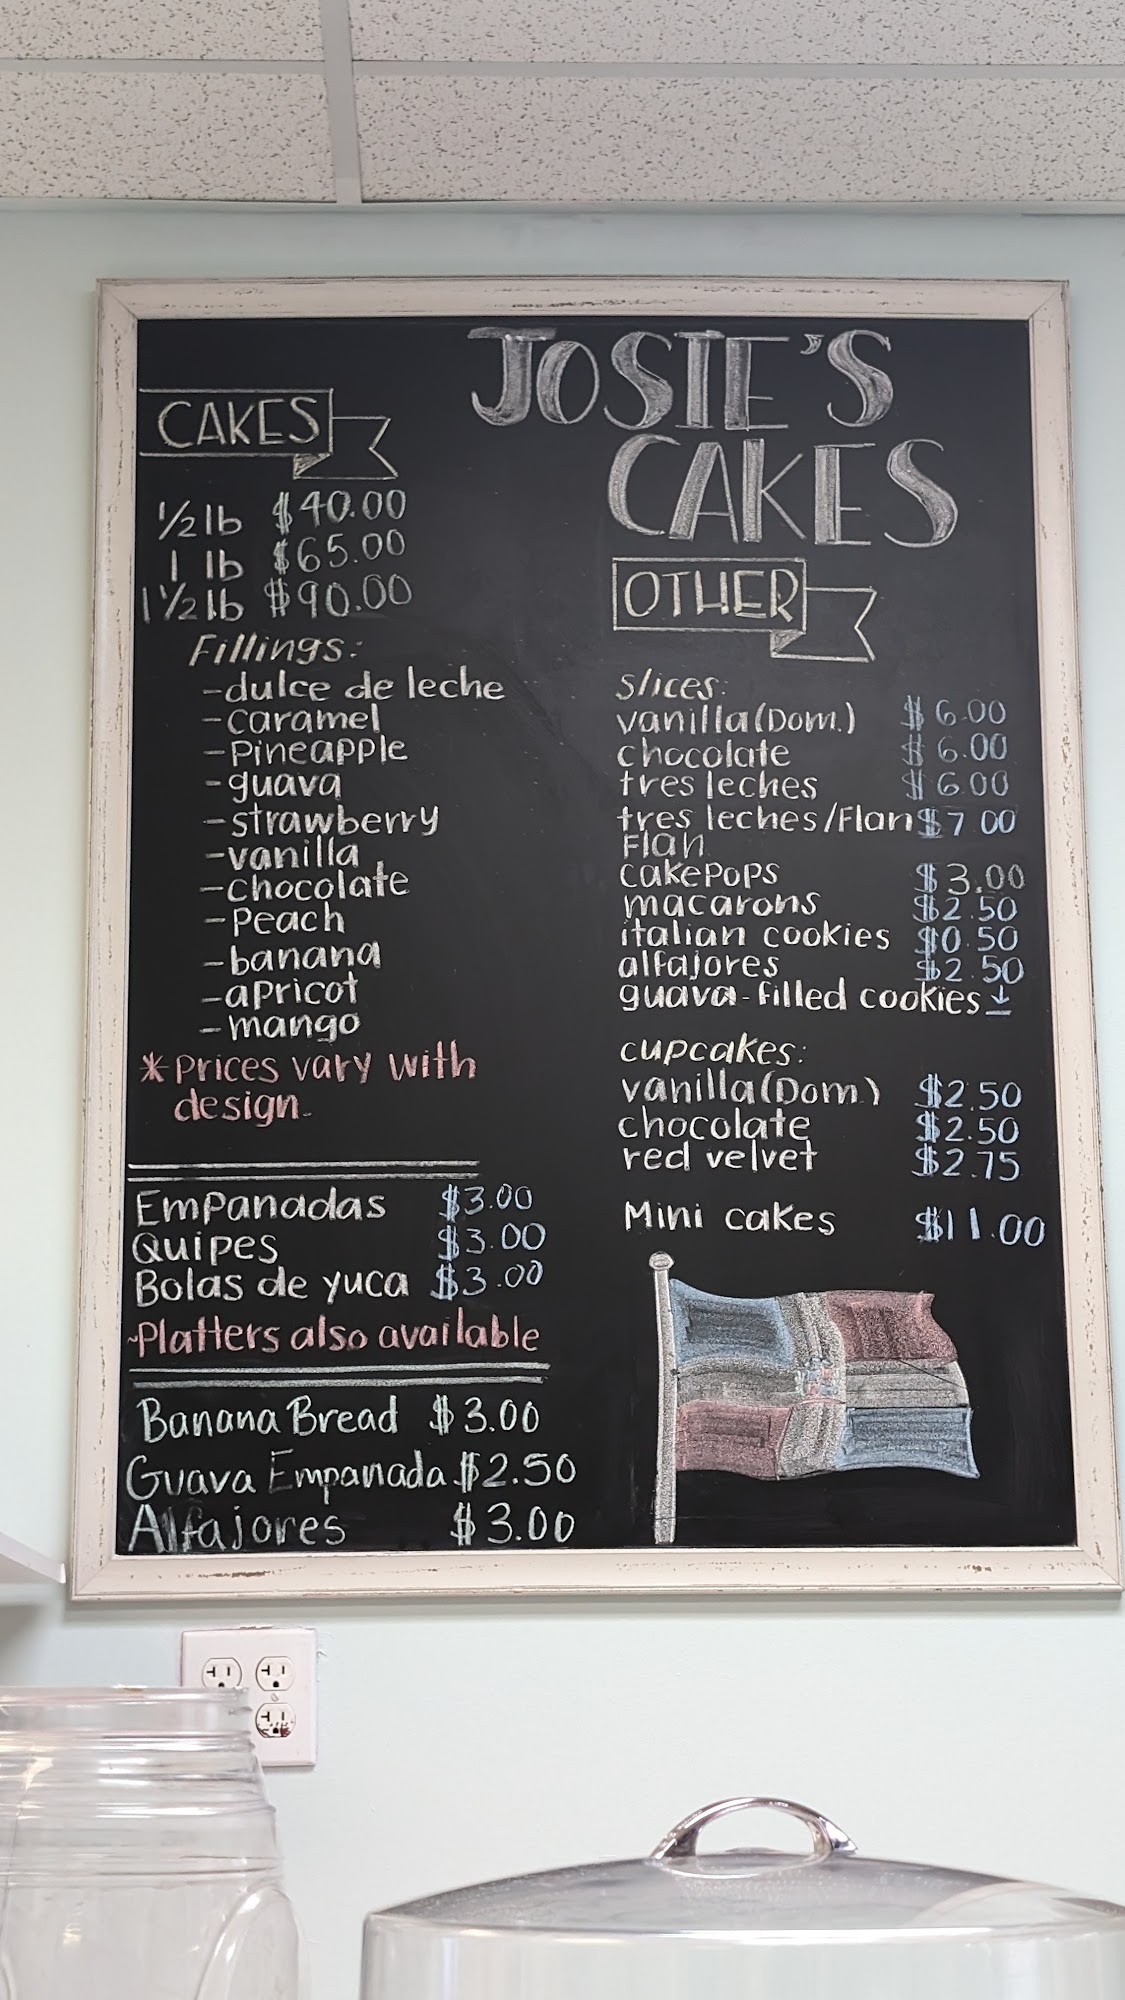 JOSIE'S
CAKES
CAKES
1/2 lb $40.00
1 lb $65.00
1 1/2 lb $90.00
Fillings:
-dulce de leche
-caramel
-Pineapple
-guava
-strawberry
-vanilla
-chocolate
-Peach
-banana
-apricot
-mango
*Prices vary with
design.
Empanadas $3.00
Quipes $3.00
Bolas de yuca $3.00
~Platters also available
Banana Bread $3.00
Guava Empanada $2.50
Alfajores $3.00
OTHER
slices:
vanilla (Dom.) $6.00
chocolate $6.00
tres leches $6.00
tres leches/Flan $7.00
Flan
cakepops $3.00
macarons $2.50
italian cookies $0.50
alfajores $2.50
guava-filled cookies ↓
cupcakes:
vanilla (Dom.) $2.50
chocolate $2.50
red velvet $2.75
Mini cakes $11.00